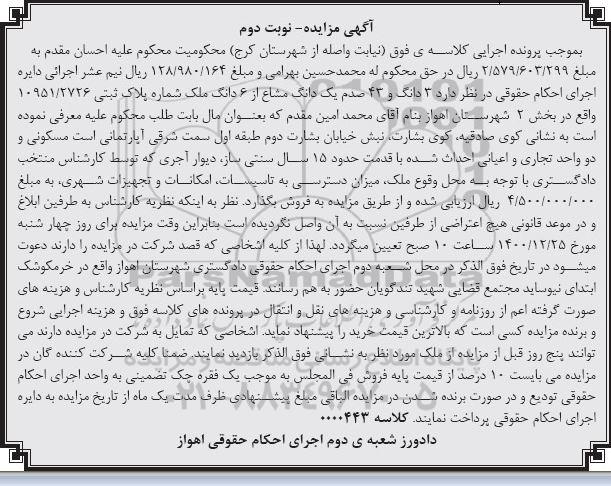 آگهی مزایده- نوبت دوم
بموجب پرونده اجرایی کلاسه ی فوق (نیابت واصله از شهرستان کرج) محکومیت محکوم علیه احسان مقدم به
مبلغ ۲/۵۷۹/۶۰۳/۲۹۹ ریال در حق محکوم له محمدحسین بهرامی و مبلغ ۱۲۸/۹۸۰/۱۶۴ ریال نیم عشر اجرائی دایره
اجرای احکام حقوقی در نظر دارد ۳ دانگ و ۴۳ صدم یک دانگ مشاع از ۶ دانگ ملک شماره پلاک ثبتی ۱۰۹۵۱/۲۷۲۶
واقع در بخش ۲ شهرستان اهواز بنام آقای محمد امین مقدم که بعنوان مال بابت طلب محکوم علیه معرفی نموده
است به نشانی کوی صادقیه، کوی بشارت، نبش خیابان بشارت دوم طبقه اول سمت شرقی آپارتمانی است مسکونی و
دو واحد تجاری و اعیانی احداث شده با قدمت حدود ۱۵ سال سنتی ساز، دیوار آجری که توسط کارشناس منتخب
دادگستری با توجه به محل وقوع ملک، میزان دسترسی به تاسیسات، امکانات و تجهیزات شهری، به مبلغ
۴/۵۰۰/۰۰۰/۰۰۰ ریال ارزیابی شده و از طریق مزایده به فروش بگذارد. نظر به اینکه نظریه کارشناس به طرفین ابلاغ
و در موعد قانونی هیچ اعتراضی از طرفین نسبت به آن واصل نگردیده است بنابراین وقت مزایده برای روز چهار شنبه
مورخ ۱۴۰۰/۱۲/۲۵ ساعت ۱۰ صبح تعیین میگردد. لهذا از کلیه اشخاصی که قصد شرکت در مزایده را دارند دعوت
میشود در تاریخ فوق الذکر در محل شعبه دوم اجرای احکام حقوقی دادگستری شهرستان اهواز واقع در خرمکوشک
ابتدای نیوساید مجتمع قضایی شهید تندگویان حضور به هم رسانند. قیمت پایه براساس نظریه کارشناس و هزینه های
صورت گرفته اعم از روزنامه و کارشناسی و هزینه های نقل و انتقال در پرونده های کلاسه فوق و هزینه اجرایی شروع
و برنده مزایده کسی است که بالاترین قیمت خرید را پیشنهاد نماید. اشخاصی که تمایل به شرکت در مزایده دارند می
توانند پنج روز قبل از مزایده از ملک مورد نظر به نشانی فوق الذکر بازدید نمایند. ضمنا کلیه شرکت کننده گان در
مزایده می بایست ۱۰ درصد از قیمت پایه فروش فی المجلس به موجب یک فقره چک تضمینی به واحد اجرای احکام
حقوقی تودیع و در صورت برنده شدن در مزایده الباقی مبلغ پیشنهادی ظرف مدت یک ماه از تاریخ مزایده به دایره
اجرای احکام حقوقی پرداخت نمایند. کلاسه ۰۰۰۰۴۴۳
دادورز شعبه ی دوم اجرای احکام حقوقی اهواز